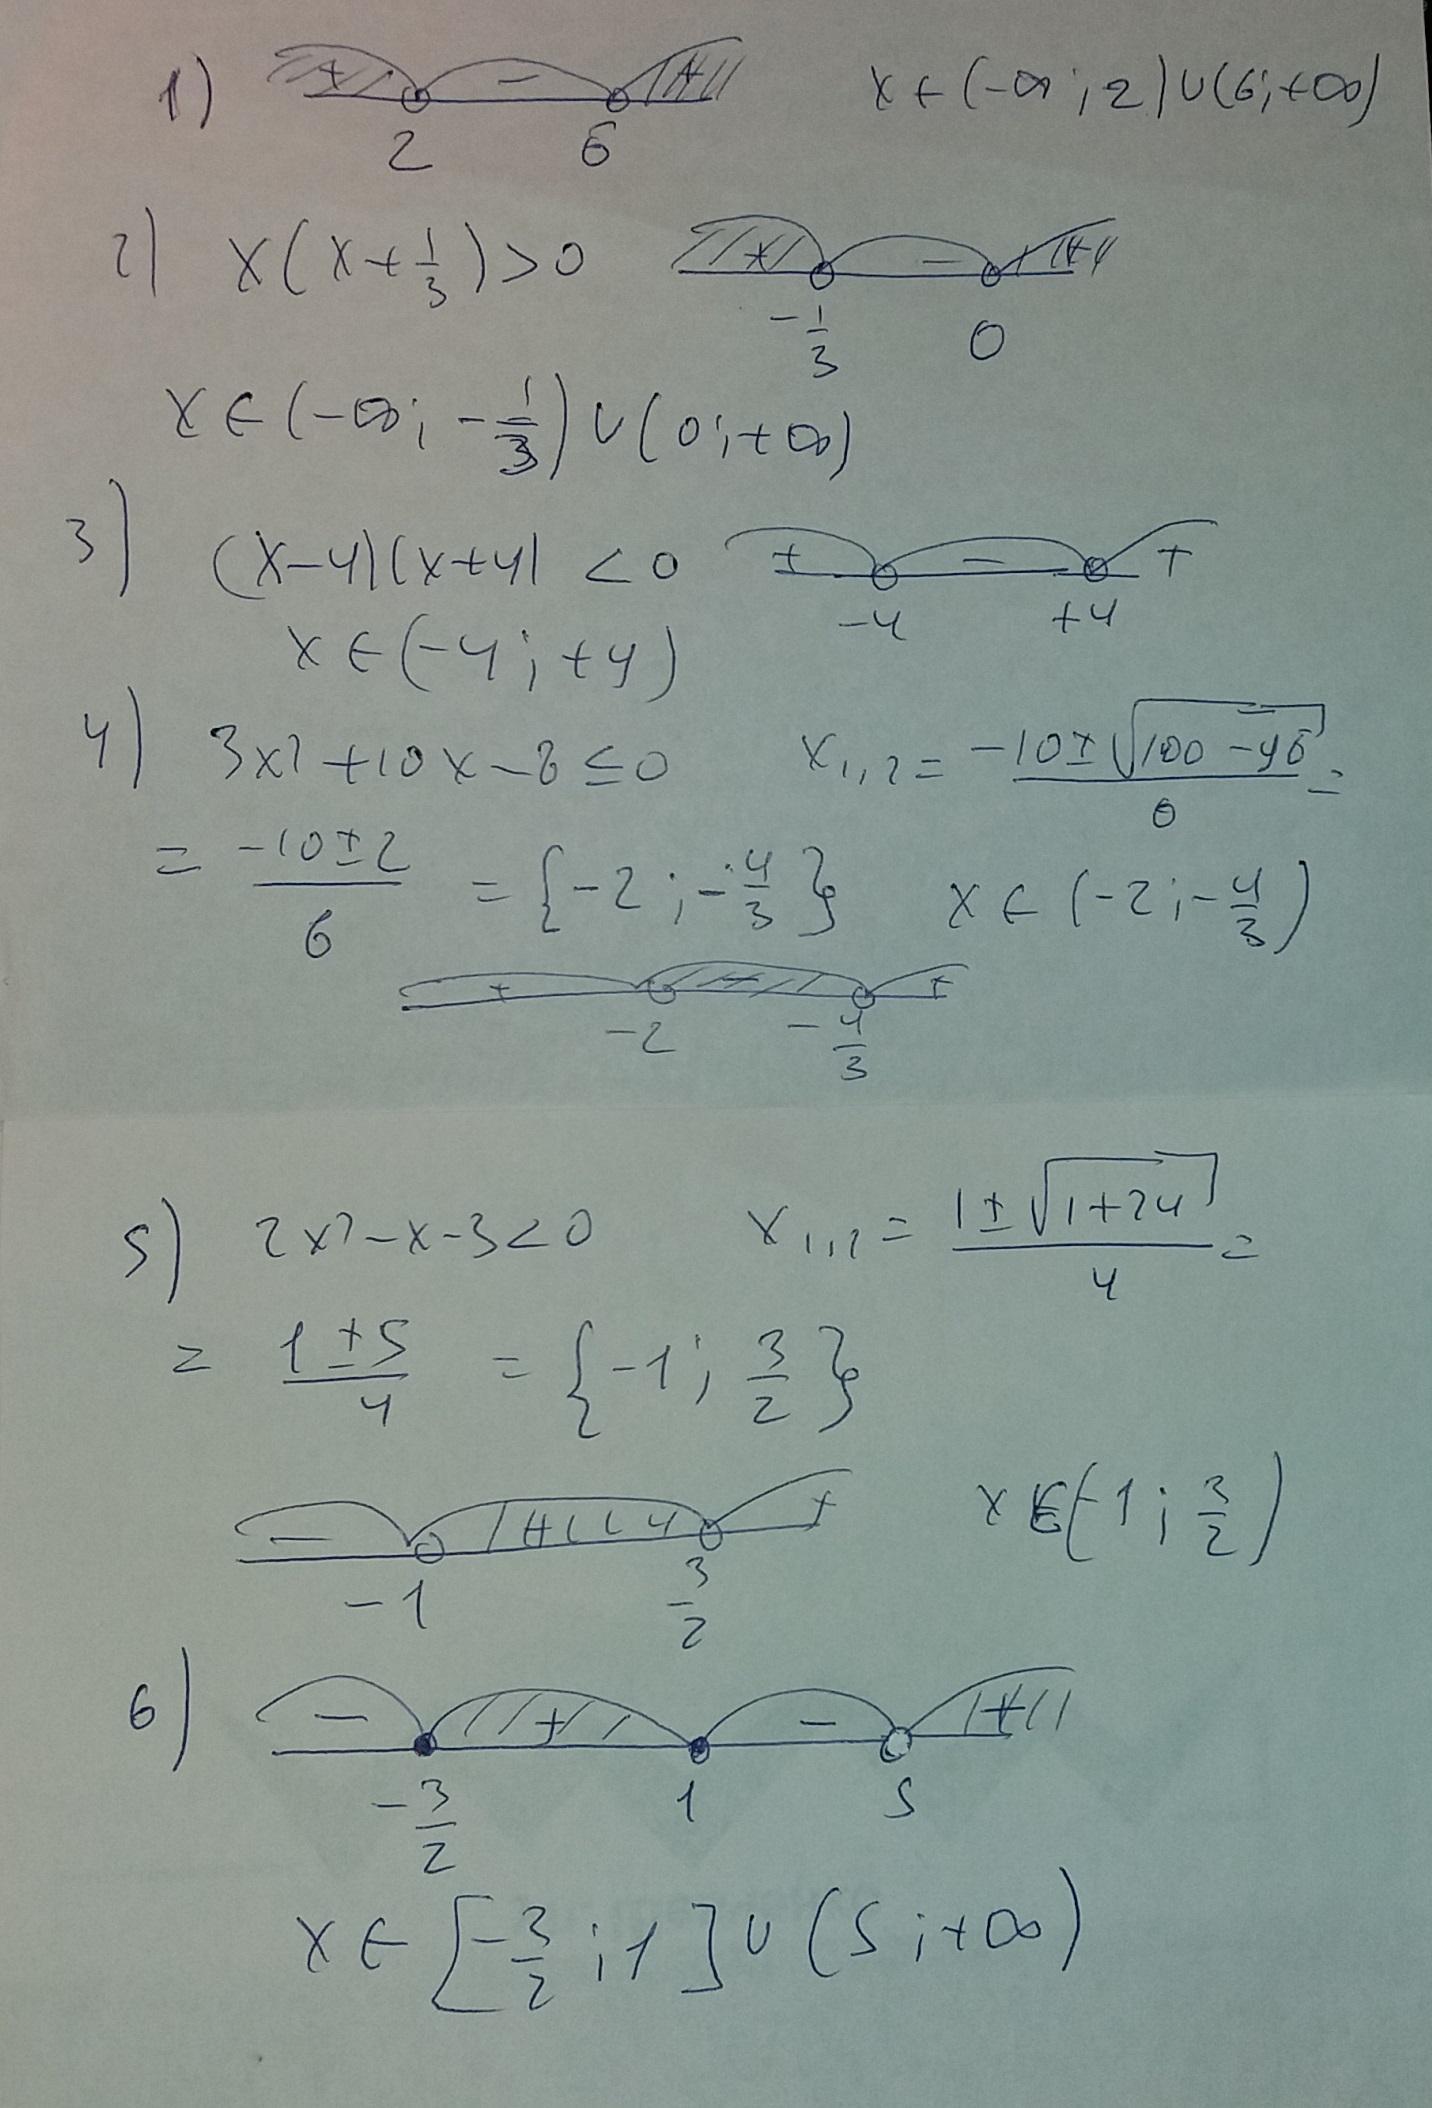 1) + - + x ∈ (-∞; 2) ∪ (6; +∞)
2 6
2) x(x + 1/3) > 0 + - +
-1/3 0
x ∈ (-∞; -1/3) ∪ (0; +∞)
3) (x-4)(x+4) < 0 + - +
-4 +4
x ∈ (-4; +4)
4) 3x² + 10x - 8 ≤ 0 x₁,₂ = (-10 ± √(100 - 96))/6 =
= (-10 ± 2)/6 = {-2; -4/3} x ∈ (-2; -4/3)
+ - +
-2 -4/3
5) 2x² - x - 3 < 0 x₁,₂ = (1 ± √(1+24))/4 =
= (1 ± 5)/4 = {-1; 3/2}
- + + x ∈ (-1; 3/2)
-1 3/2
6) - + - +
-3/2 1 5
x ∈ [-3/2; 1] ∪ (5; +∞)